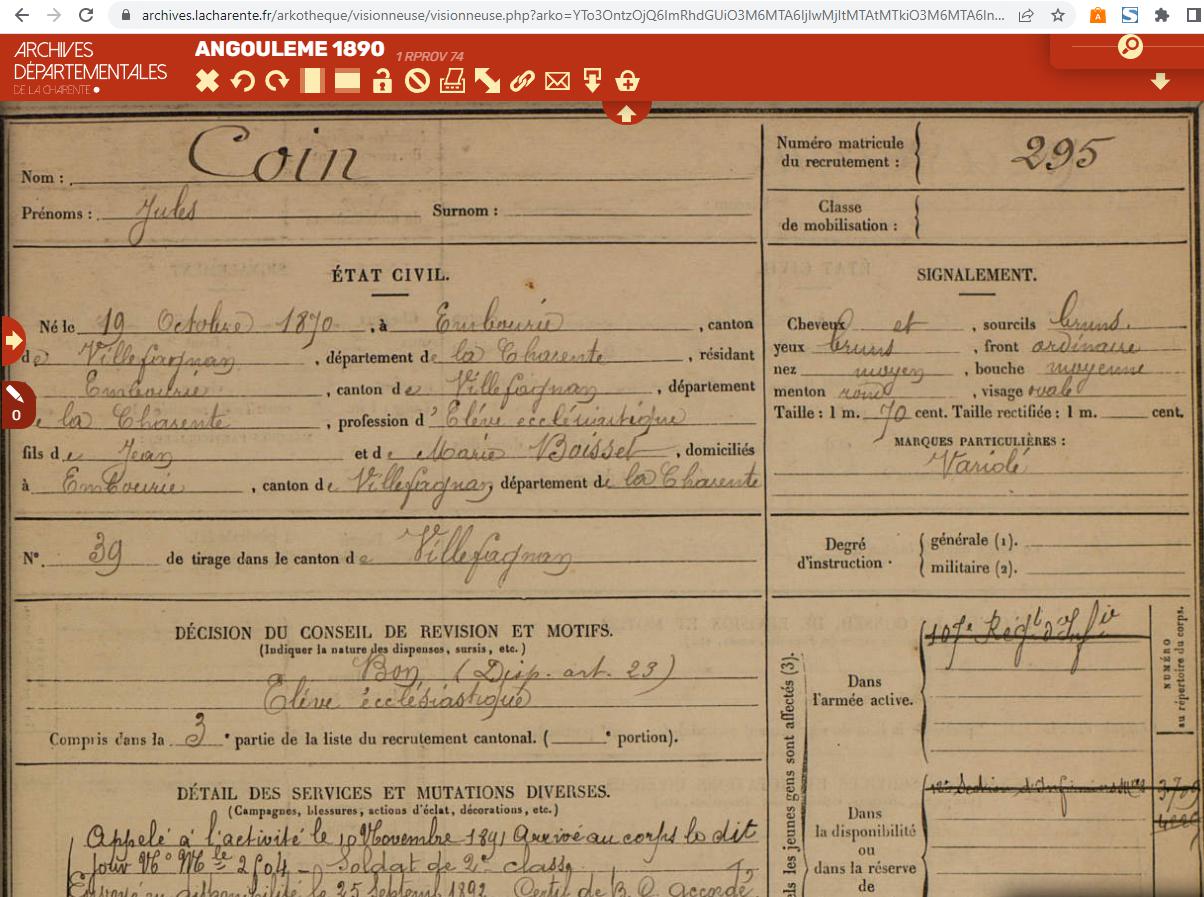 archives.lacharente.fr/arkotheque/visionneuse/visionneuse.php?arko=YTo3OntzOjQ6ImRhdGUiO3M6MTA6IjIwMjItMTAtMTkiO3M6MTA6In...
ARCHIVES
DÉPARTEMENTALES
DE LA CHARENTE
ANGOULEME 1890 1 RPROV 74
0
Coin
Nom :
Prénoms : Jules Surnom :
Numéro matricule
du recrutement : 295
Classe
de mobilisation :
ÉTAT CIVIL.
Né le 19 Octobre 1870, à Embourie, canton
de Villefagnan, département de la Charente, résidant
Embourie, canton de Villefagnan, département
de la Charente, profession d'Elève ecclésiastique
fils de Jean et de Marie Boisset, domiciliés
à Embourie, canton de Villefagnan département de la Charente
SIGNALEMENT.
Cheveux et, sourcils bruns.
yeux bruns, front ordinaire
nez moyen, bouche moyenne
menton rond, visage ovale
Taille : 1 m. 70 cent. Taille rectifiée : 1 m. cent.
MARQUES PARTICULIÈRES :
Variolé
N°. 39 de tirage dans le canton de Villefagnan
Degré
d'instruction .
générale (1).
militaire (2).
DÉCISION DU CONSEIL DE REVISION ET MOTIFS.
(Indiquer la nature des dispenses, sursis, etc.)
Bon (Disp. art. 23)
Elève ecclésiastique
Compris dans la 3e partie de la liste du recrutement cantonal. ( e portion).
DÉTAIL DES SERVICES ET MUTATIONS DIVERSES.
(Campagnes, blessures, actions d'éclat, décorations, etc.)
Appelé à l'activité le 10 Novembre 1891 Arrivé au corps le dit
jour N° Mle 2504 - Soldat de 2e classe
Envoyé en disponibilité le 25 Septem 1892 Certif de B. C. accordé
els les jeunes gens sont affectés (3).
Dans
l'armée active.
107e Régt d'Infie
NUMÉRO
au répertoire du corps.
Dans
la disponibilité
ou
dans la réserve
de
12e Section d'Infirmiers Mres